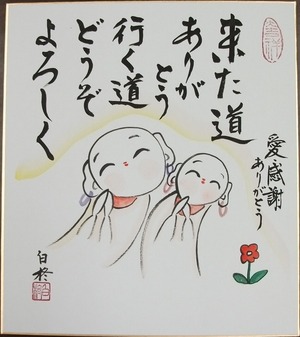 来た道
ありが
とう
行く道
どうぞ
よろしく
愛・感謝
ありがとう